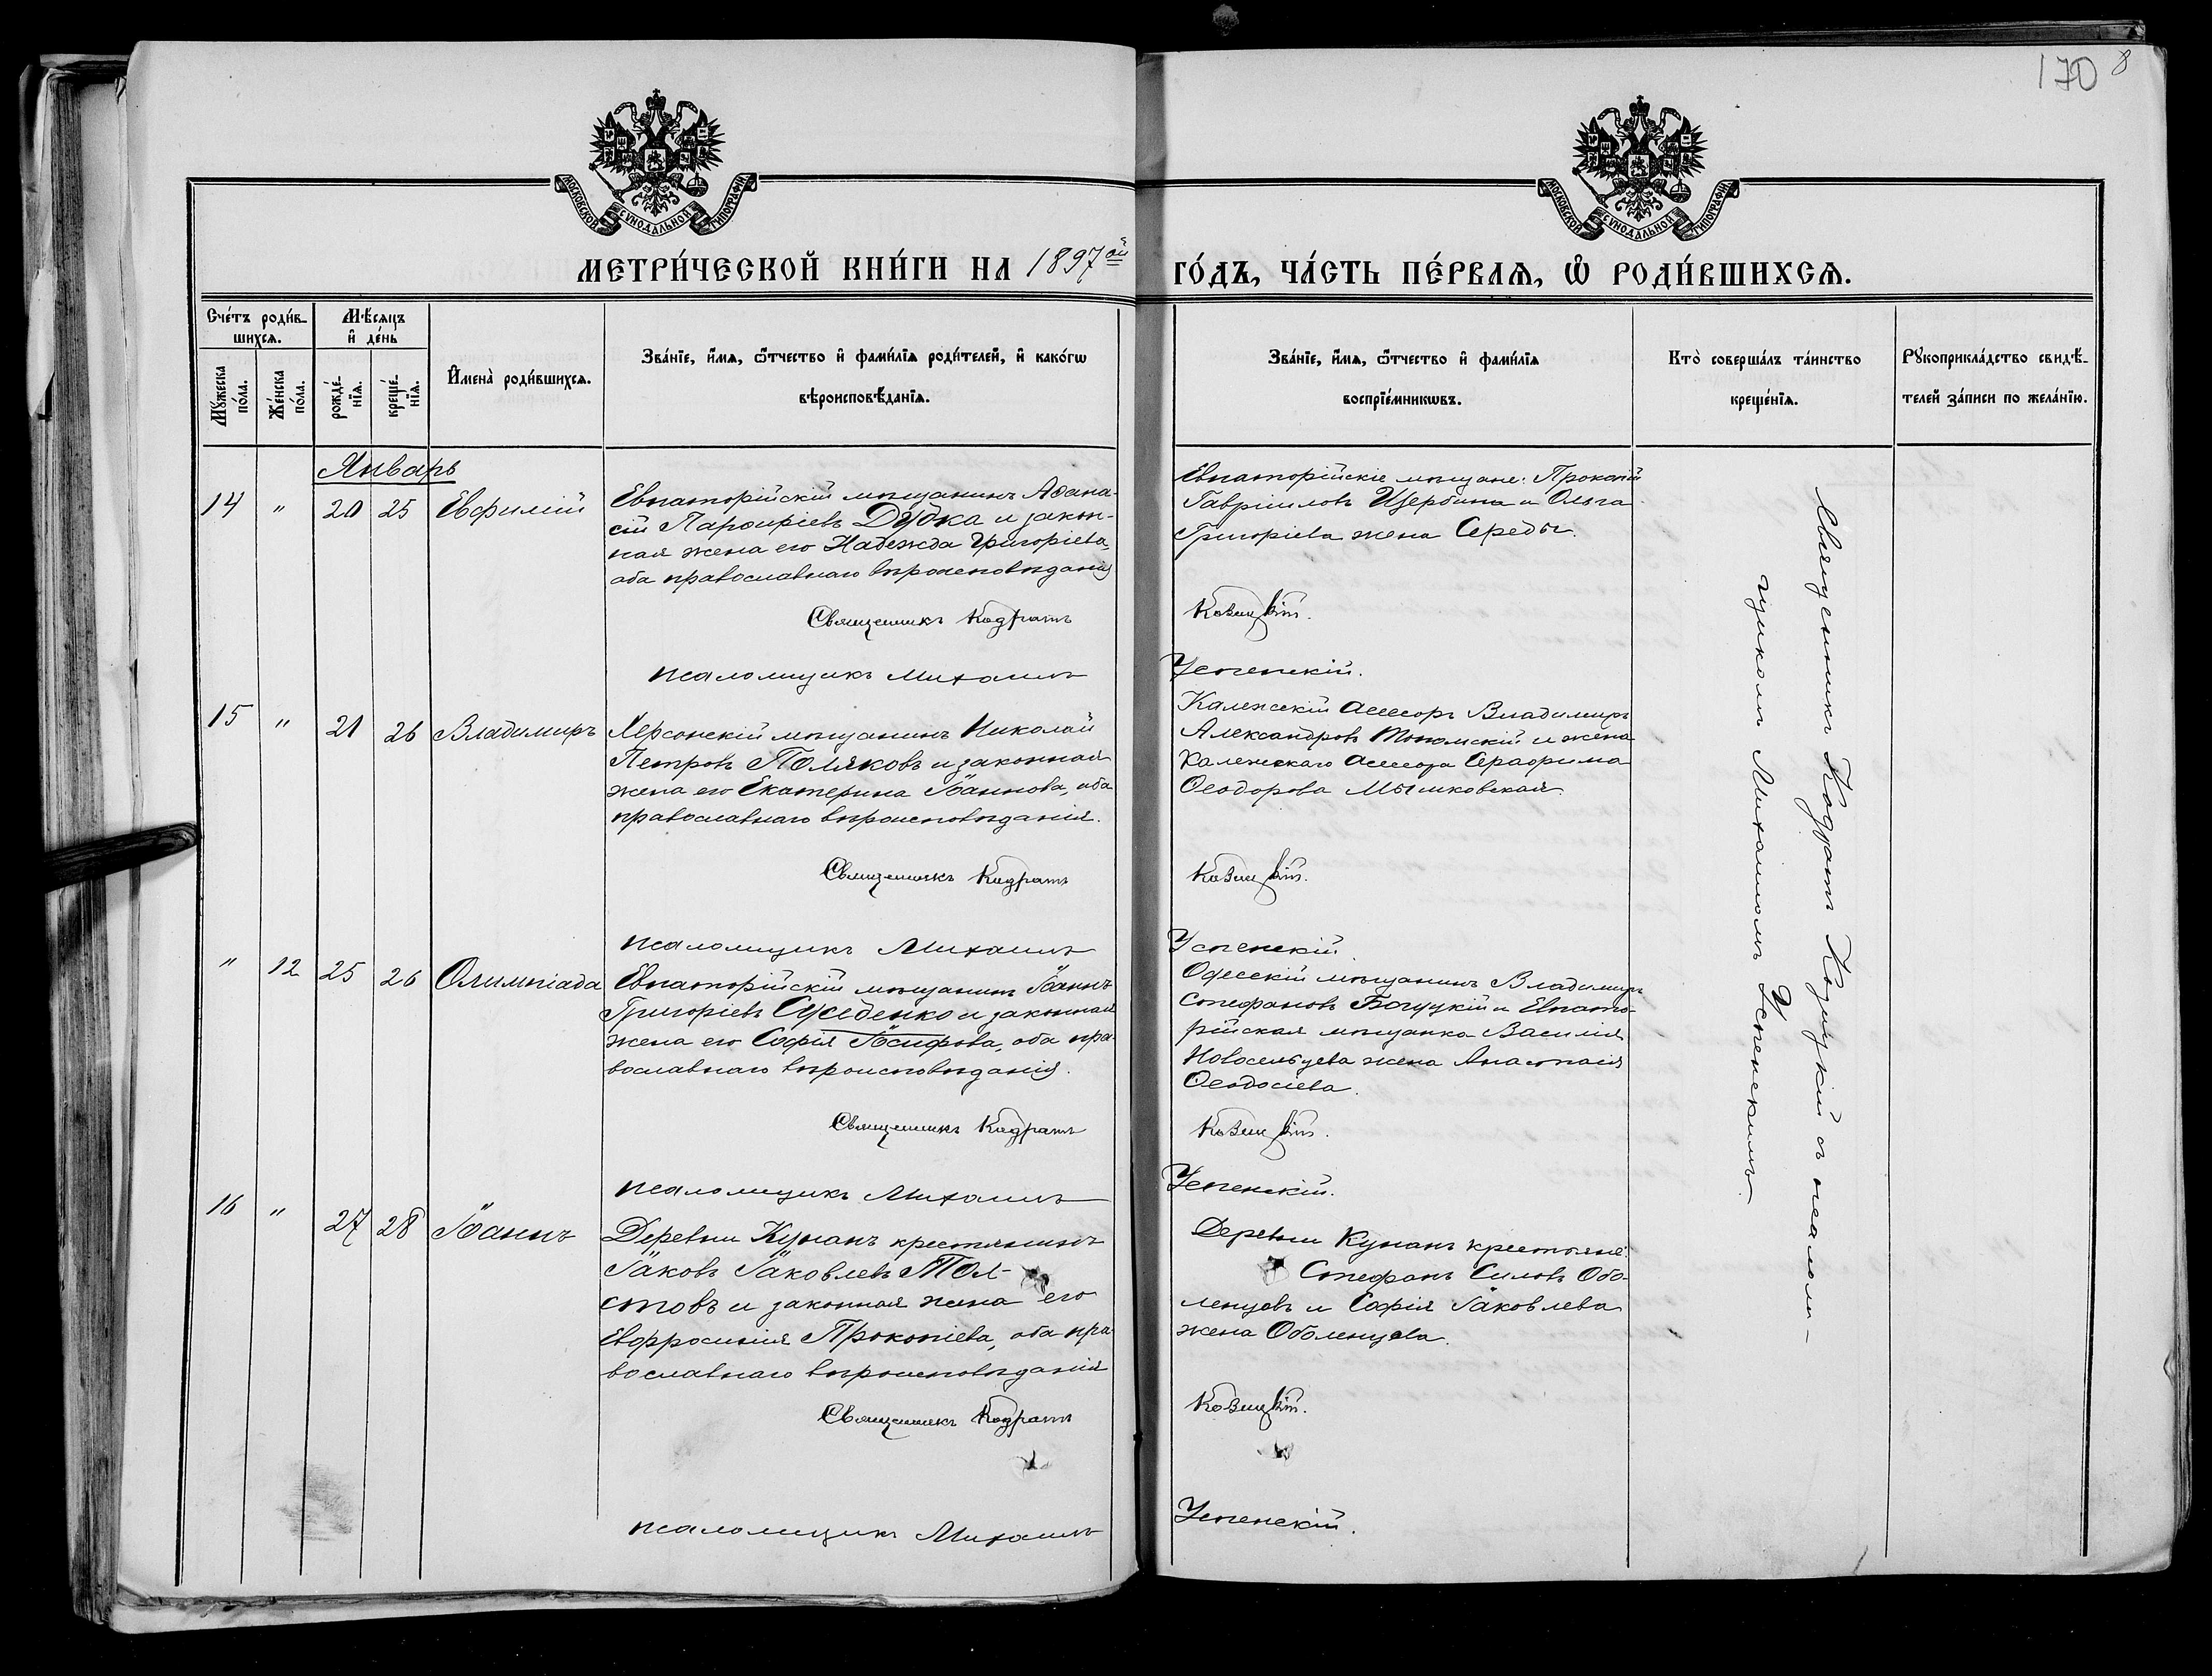 170 8
МОСКОВСКОЙ СѴНОДАЛЬНОЙ ТИПОГРАФІИ
МОСКОВСКОЙ СѴНОДАЛЬНОЙ ТИПОГРАФІИ
МЕТРИ́ЧЕСКОЙ КНИ́ГИ НА 1897ой ГО́ДЪ, ЧА́СТЬ ПЕ́РВАѦ, Ѡ҆ РОДИ́ВШИХСѦ.
Сче́тъ роди́в-
шихсѧ.
Мꙋ́жеска по́ла.
Же́нска по́ла.
Мѣ́сѧцъ
и҆ де́нь
рожде́-
нїѧ.
креще́-
нїѧ.
И҆мена̀ роди́вшихсѧ.
Зва́нїе, и҆́мѧ, ѻ҆́тчество и҆ фами́лїѧ роди́телей, и҆ како́гѡ
вѣроисповѣ́данїѧ.
Зва́нїе, и҆́мѧ, ѻ҆́тчество и҆ фами́лїѧ
воспрїе́мникѡвъ.
Кто̀ соверша́лъ та́инство
креще́нїѧ.
Рꙋкоприкла́дство свидѣ́-
телей за́писи по жела́нїю.
Январь
14 " 20 25 Евфимій
Евпаторійскій мѣщанинъ Аѳана-
сій Парѳиріевъ Дудка и закон-
ная жена его Надежда Григоріева,
оба православнаго вѣроисповѣданія
Священникъ Кодратъ
псаломщикъ Михаилъ
Евпаторійскіе мѣщане: Прокопій
Гавріиловъ Щербина и Ольга
Григоріева жена Середы.
Козицкій.
Успенскій.
15 " 21 26 Владимиръ
Херсонскій мѣщанинъ Николай
Петровъ Поляковъ и законная
жена его Екатерина Іоаннова, оба
православнаго вѣроисповѣданія.
Священникъ Кодратъ
псаломщикъ Михаилъ
Калежскій асессоръ Владимиръ
Александровъ и жена
Калежскаго асессора Серафима
Ѳеодорова
Козицкій.
Успенскій
" 12 25 26 Олимпіада
Евпаторійскій мѣщанинъ Іоаннъ
Григоріевъ Суседенко и законная
жена его Софія Іосифова, оба пра-
вославнаго вѣроисповѣданія.
Священникъ Кодратъ
псаломщикъ Михаилъ
Одесскій мѣщанинъ Владимиръ
Стефановъ Богуцкій и Евпато-
рійская мѣщанка Василія
Новосельцева жена Анастасія
Ѳеодосіева.
Козицкій.
Успенскій.
16 " 27 28 Іоаннъ
Деревни Кунанъ крестьянинъ
Іаковъ Іаковлевъ Тол-
стовъ и законная жена его
Евфросинія Прокопіева, оба пра-
вославнаго вѣроисповѣданія
Священникъ Кодратъ
псаломщикъ Михаилъ
Деревни Кунанъ крестьяне:
Стефанъ Силовъ Обо-
ленцевъ и Софія Іаковлева
жена Оболенцева.
Козицкій.
Успенскій.
Священникъ Кодратъ Козицкій съ псалом-
щикомъ Михаиломъ Успенскимъ.